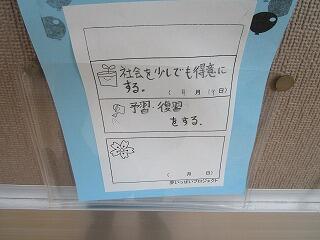 社会を少しでも得意に
する。
( 月 日)
予習 復習
をする.
( 月 日)
夢いっぱいプロジェクト